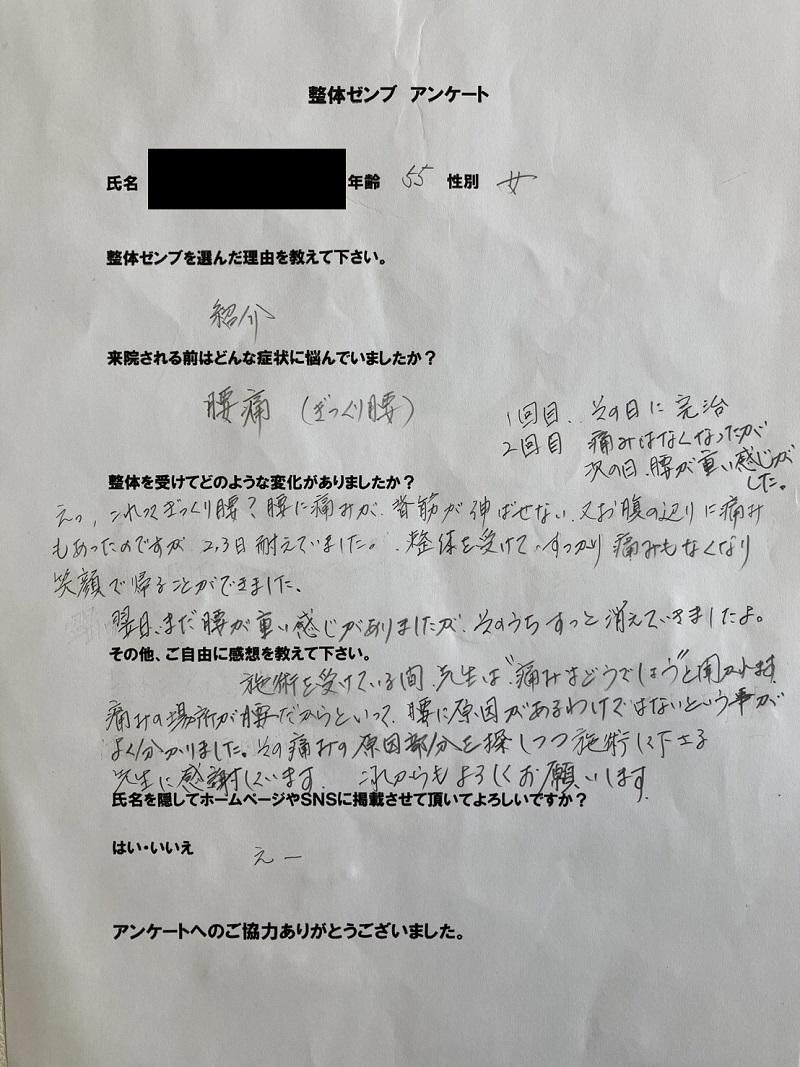 整体ゼンブ アンケート
氏名 年齢 55 性別 女
整体ゼンブを選んだ理由を教えて下さい。
紹介
来院される前はどんな症状に悩んでいましたか？
腰痛 (ぎっくり腰)
1回目、その日に完治
2回目 痛みはなくなったが
次の日、腰が重い感じが
した。
整体を受けてどのような変化がありましたか？
えっ、これってぎっくり腰？腰に痛みが、背筋が伸ばせない、又お腹の辺りに痛み
もあったのですが 2,3日耐えていました。整体を受けて、すっかり痛みもなくなり
笑顔で帰ることができました。
翌日、まだ腰が重い感じがありましたが、そのうちすっと消えていきましたよ。
その他、ご自由に感想を教えて下さい。
施術を受けている間、先生は"痛みはどうでしょう"と聞かれます
痛みの場所が腰だからといって、腰に原因があるわけではないという事が
よく分かりました。その痛みの原因部分を探しつつ施術して下さる
先生に感謝しています。これからもよろしくお願いします。
氏名を隠してホームページやSNSに掲載させて頂いてよろしいですか？
はい・いいえ えー
アンケートへのご協力ありがとうございました。